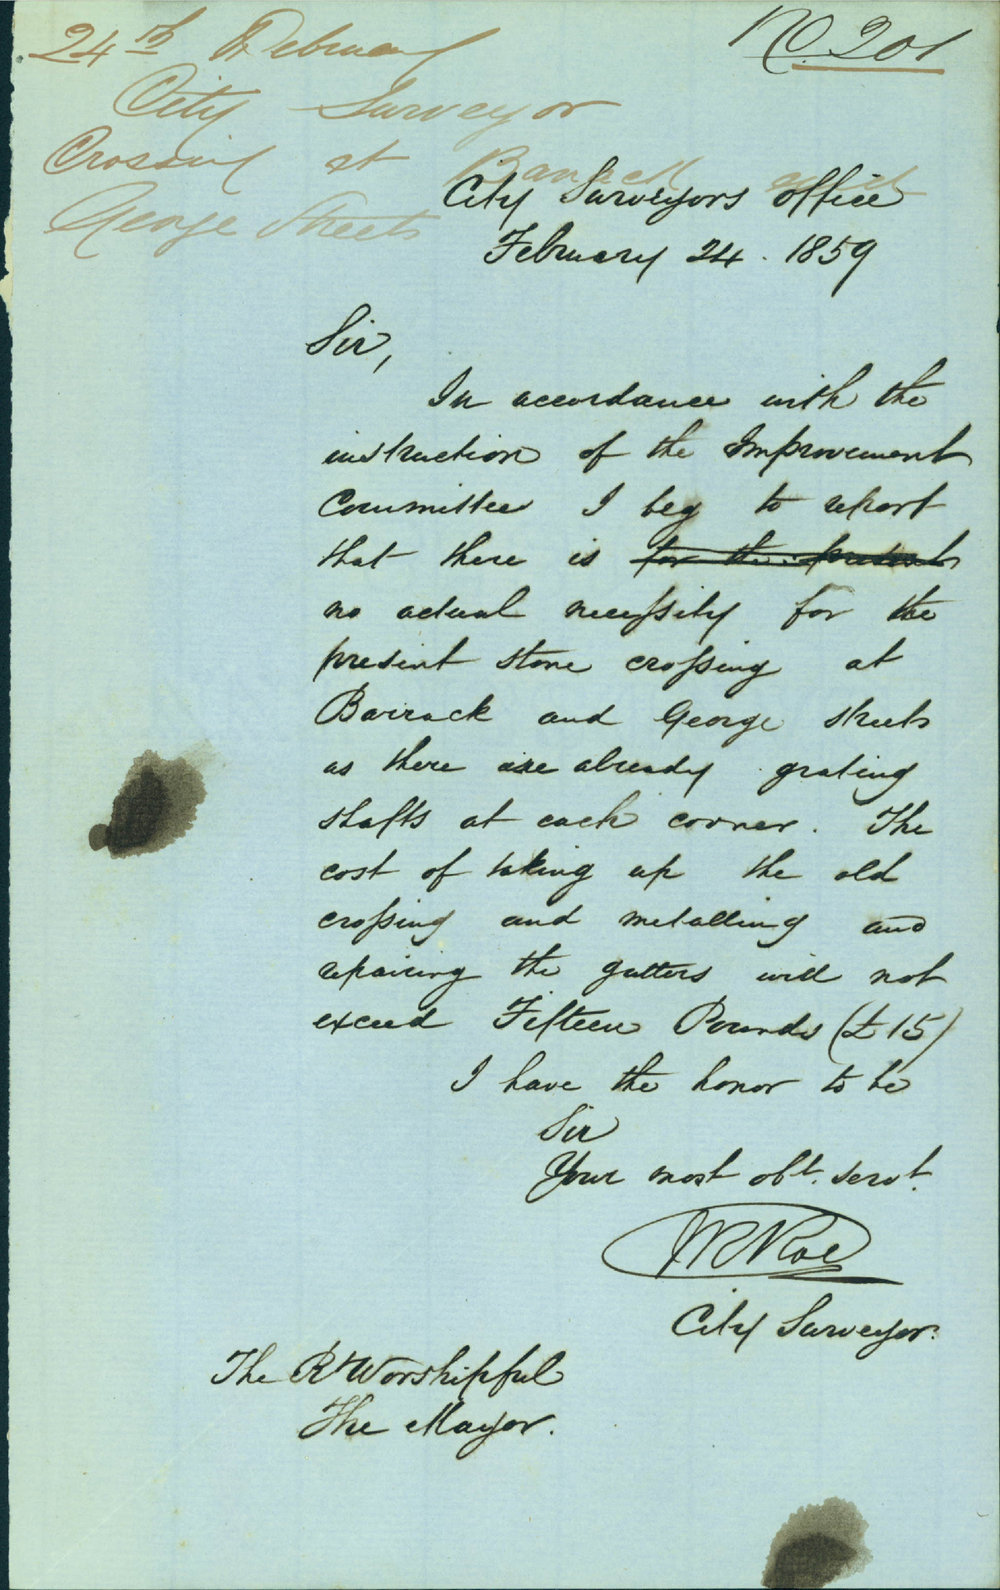 24th February
No. 201
City Surveyor
Crossing at Barrack and
George Streets
City Surveyors office
February 24. 1859
Sir,
In accordance with the
instruction of the Improvement
Committee I beg to report
that there is for the present
no actual necessity for the
present stone crossing at
Barrack and George streets
as there are already grating
shafts at each corner. The
cost of taking up the old
crossing and metalling and
repairing the gutters will not
exceed Fifteen Pounds (£15)
I have the honor to be
Sir
Your most obt. servt.
City Surveyor.
The Rt Worshipful
The Mayor.